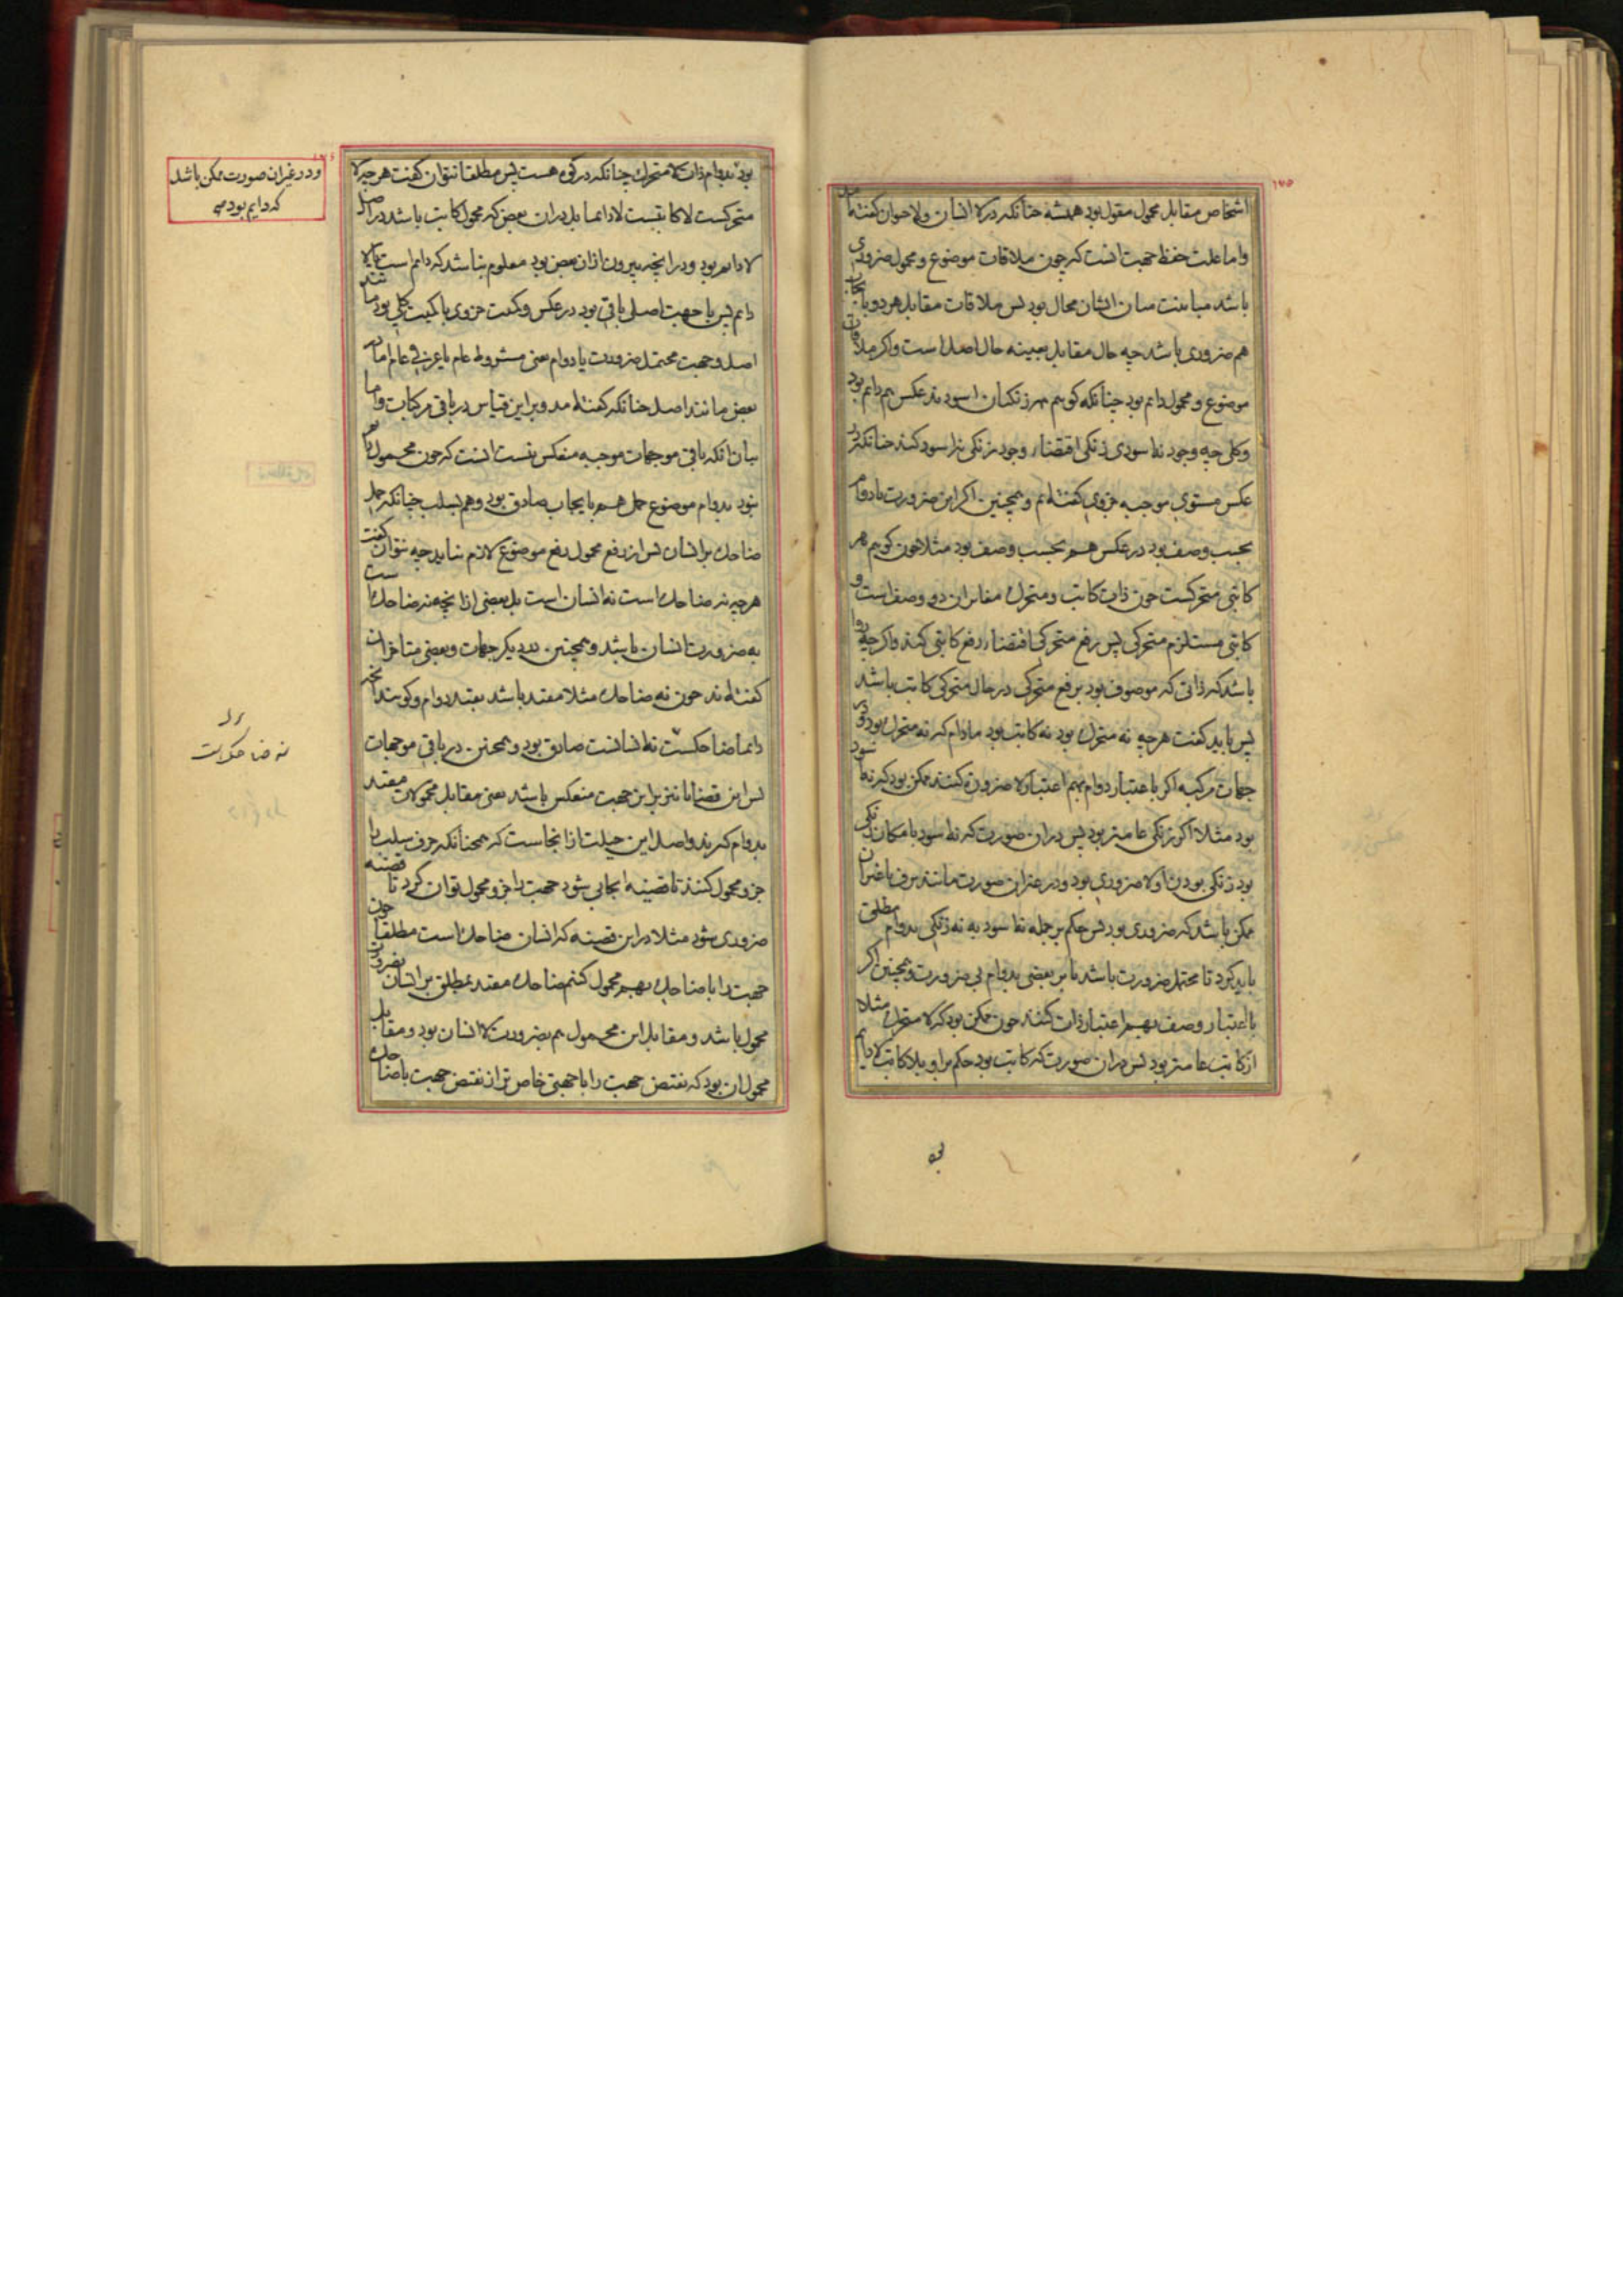 ۱۷۵
اشخاص مقابل محمول مقول بود همیشه چنانکه در لا انسان ولا حیوان گفته‌اند
واما علت حفظ جهت آنست که چون ملاقات موضوع و محمول ضروری
باشد مباینت میان ایشان محال بود پس ملاقات مقابل هر دو بایجاب
هم ضروری باشد چه حال مقابل بعینه حال اصل است واگر ملاقات
موضوع و محمول دایم بود چنانکه گوییم هر زنگیان اسودند عکس هم دایم بود
وکلی چه وجود نه اسودی نه زنگی اقتضاء وجود زنگی نه اسود کند چنانکه در
عکس مستوی موجبه جزوی گفته‌ایم و همچنین اگر این ضرورت یا دوام
بحسب وصف بود در عکس هم بحسب وصف بود مثلا چون گوییم هر
کاتبی متحرکست چون ذات کاتب و متحرک مغایر آن دو وصف است و
کاتبی مستلزم متحرکی پس رفع متحرکی اقتضاء رفع کاتبی کند واگرچه روا
باشد که ذاتی که موصوف بود برفع متحرکی در حال متحرکی کاتب باشد
پس باید گفت هرچه نه متحرک بود نه کاتب بود مادام که نه متحرک بود و در
جهات مرکبه اگر با اعتبار دوام بهم اعتبار لا ضرورة کنند ممکن بود که نه اسود
بود مثلا اگر زنگی عامتر بود پس در آن صورت که نه اسود بامکان زنگی
بود زنگی بودن او لا ضروری بود و در غیر آن صورت مانند برف یا غیر آن
ممکن باشد که ضروری بود پس حکم بر جمله نه اسود به نه زنگی بدوام مطلق
باید کرد تا محتمل ضرورت باشد یا بر بعضی بدوام بی ضرورت و همچنین اگر
با اعتبار وصف بهم اعتبار ذات کنند چون ممکن بود که لا متحرک مثلا
از کاتب عامتر بود پس در آن صورت که کاتب بود حکم بر او بلا کاتب لا دایم
بود بدوام ذات لا متحرک چنانکه در کی هست پس مطلقا نتوان گفت هرچه لا
متحرکست لا کاتبست لا دایما بل در آن بعض که محمول کاتب باشد در اصل
لا دایم بود و در آنچه بیرون از آن بعض بود معلوم نباشد که دایم است یا لا
دایم پس با جهت اصلی باقی بود در عکس و کمیت جزوی یا کمیت کلی بود مانند
اصل و جهت محتمل ضرورت یا دوام یعنی مشروط عام یا عرفی عام اما در
بعض مانند اصل چنانکه گفته‌اند و برین قیاس در باقی مرکبات واما
بیان آنکه باقی موجهات موجبه منعکس نیست آنست که چون محمول دایم
نبود بدوام موضوع حمل هم بایجاب صادق بود و هم بسلب چنانکه حمل
ضاحک بر انسان پس از رفع محمول رفع موضوع لازم نیاید چه نتوان گفت
هرچه نه ضاحک است نه انسان است بل بعضی از آنچه نه ضاحک است
به ضرورت انسان باشد و همچنین در دیگر جهات و بعضی متاخران
گفته‌اند چون نه ضاحک مثلا مقید باشد بقید دوام و گویند آنچه
دایما نه ضاحکست نه انسانست صادق بود و همچنین در باقی موجهات
پس این قضایا نیز برین جهت منعکس باشد یعنی مقابل محمولات مقید
بدوام گیرند و اصل این حیلت از آنجاست که همچنانکه حرف سلب را
جزو محمول کنند تا قضیه ایجابی شود جهت را جزو محمول توان کرد تا قضیه
ضروری شود مثلا در این قضیه که انسان ضاحک است مطلقا چون
جهت را با ضاحک بهم محمول کنیم ضاحک مقید بمطلق بر انسان بضرورت
محمول باشد و مقابل این محمول هم بضرورت لا انسان بود و مقابل
محمول آن بود که نقیض جهت را یا جهتی خاص‌تر از نقیض جهت با ضاحک
ودر غیر آن صورت ممکن باشد
که دایم بود
نه ضاحک است